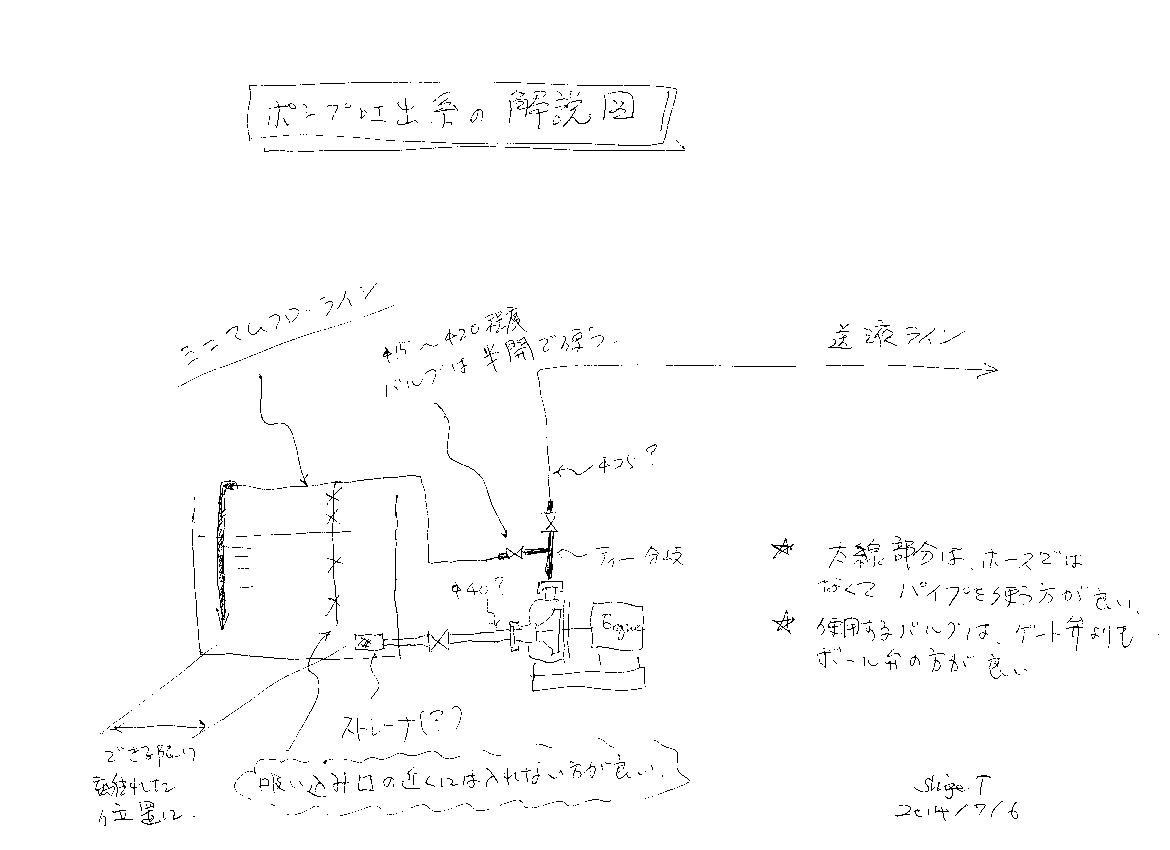 ポンプ吐出系の解説図
ミニマムフローライン
φ15～φ20程度
バルブは半開で使う.
送液ライン
φ25?
ティー分岐
φ40?
Engine
★ 太線部分は、ホースでは
なくて パイプを使う方が良い.
★ 使用するバルブは、ゲート弁よりも
ボール弁の方が良い
ストレーナ(?)
できる限り
離れした
位置に.
吸い込み口の近くには入れない方が良い.
Shige.T
2014/7/6